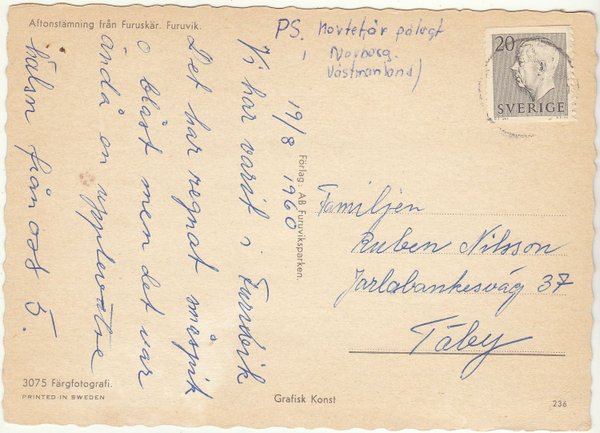 Aftonstämning från Furuskär. Furuvik.
PS. Kortet är pålagt
i Norberg.
Västmanland)
20
SVERIGE
19/8 1960
Vi har varit i Furuvik
Det har regnat
o blåst men det var
ändå en upplevelse
hälsn från oss 5.
Förlag: AB Furuviksparken.
Familjen
Ruben Nilsson
Jarlabankesväg 37
Täby
3075 Färgfotografi.
PRINTED IN SWEDEN
Grafisk Konst
236